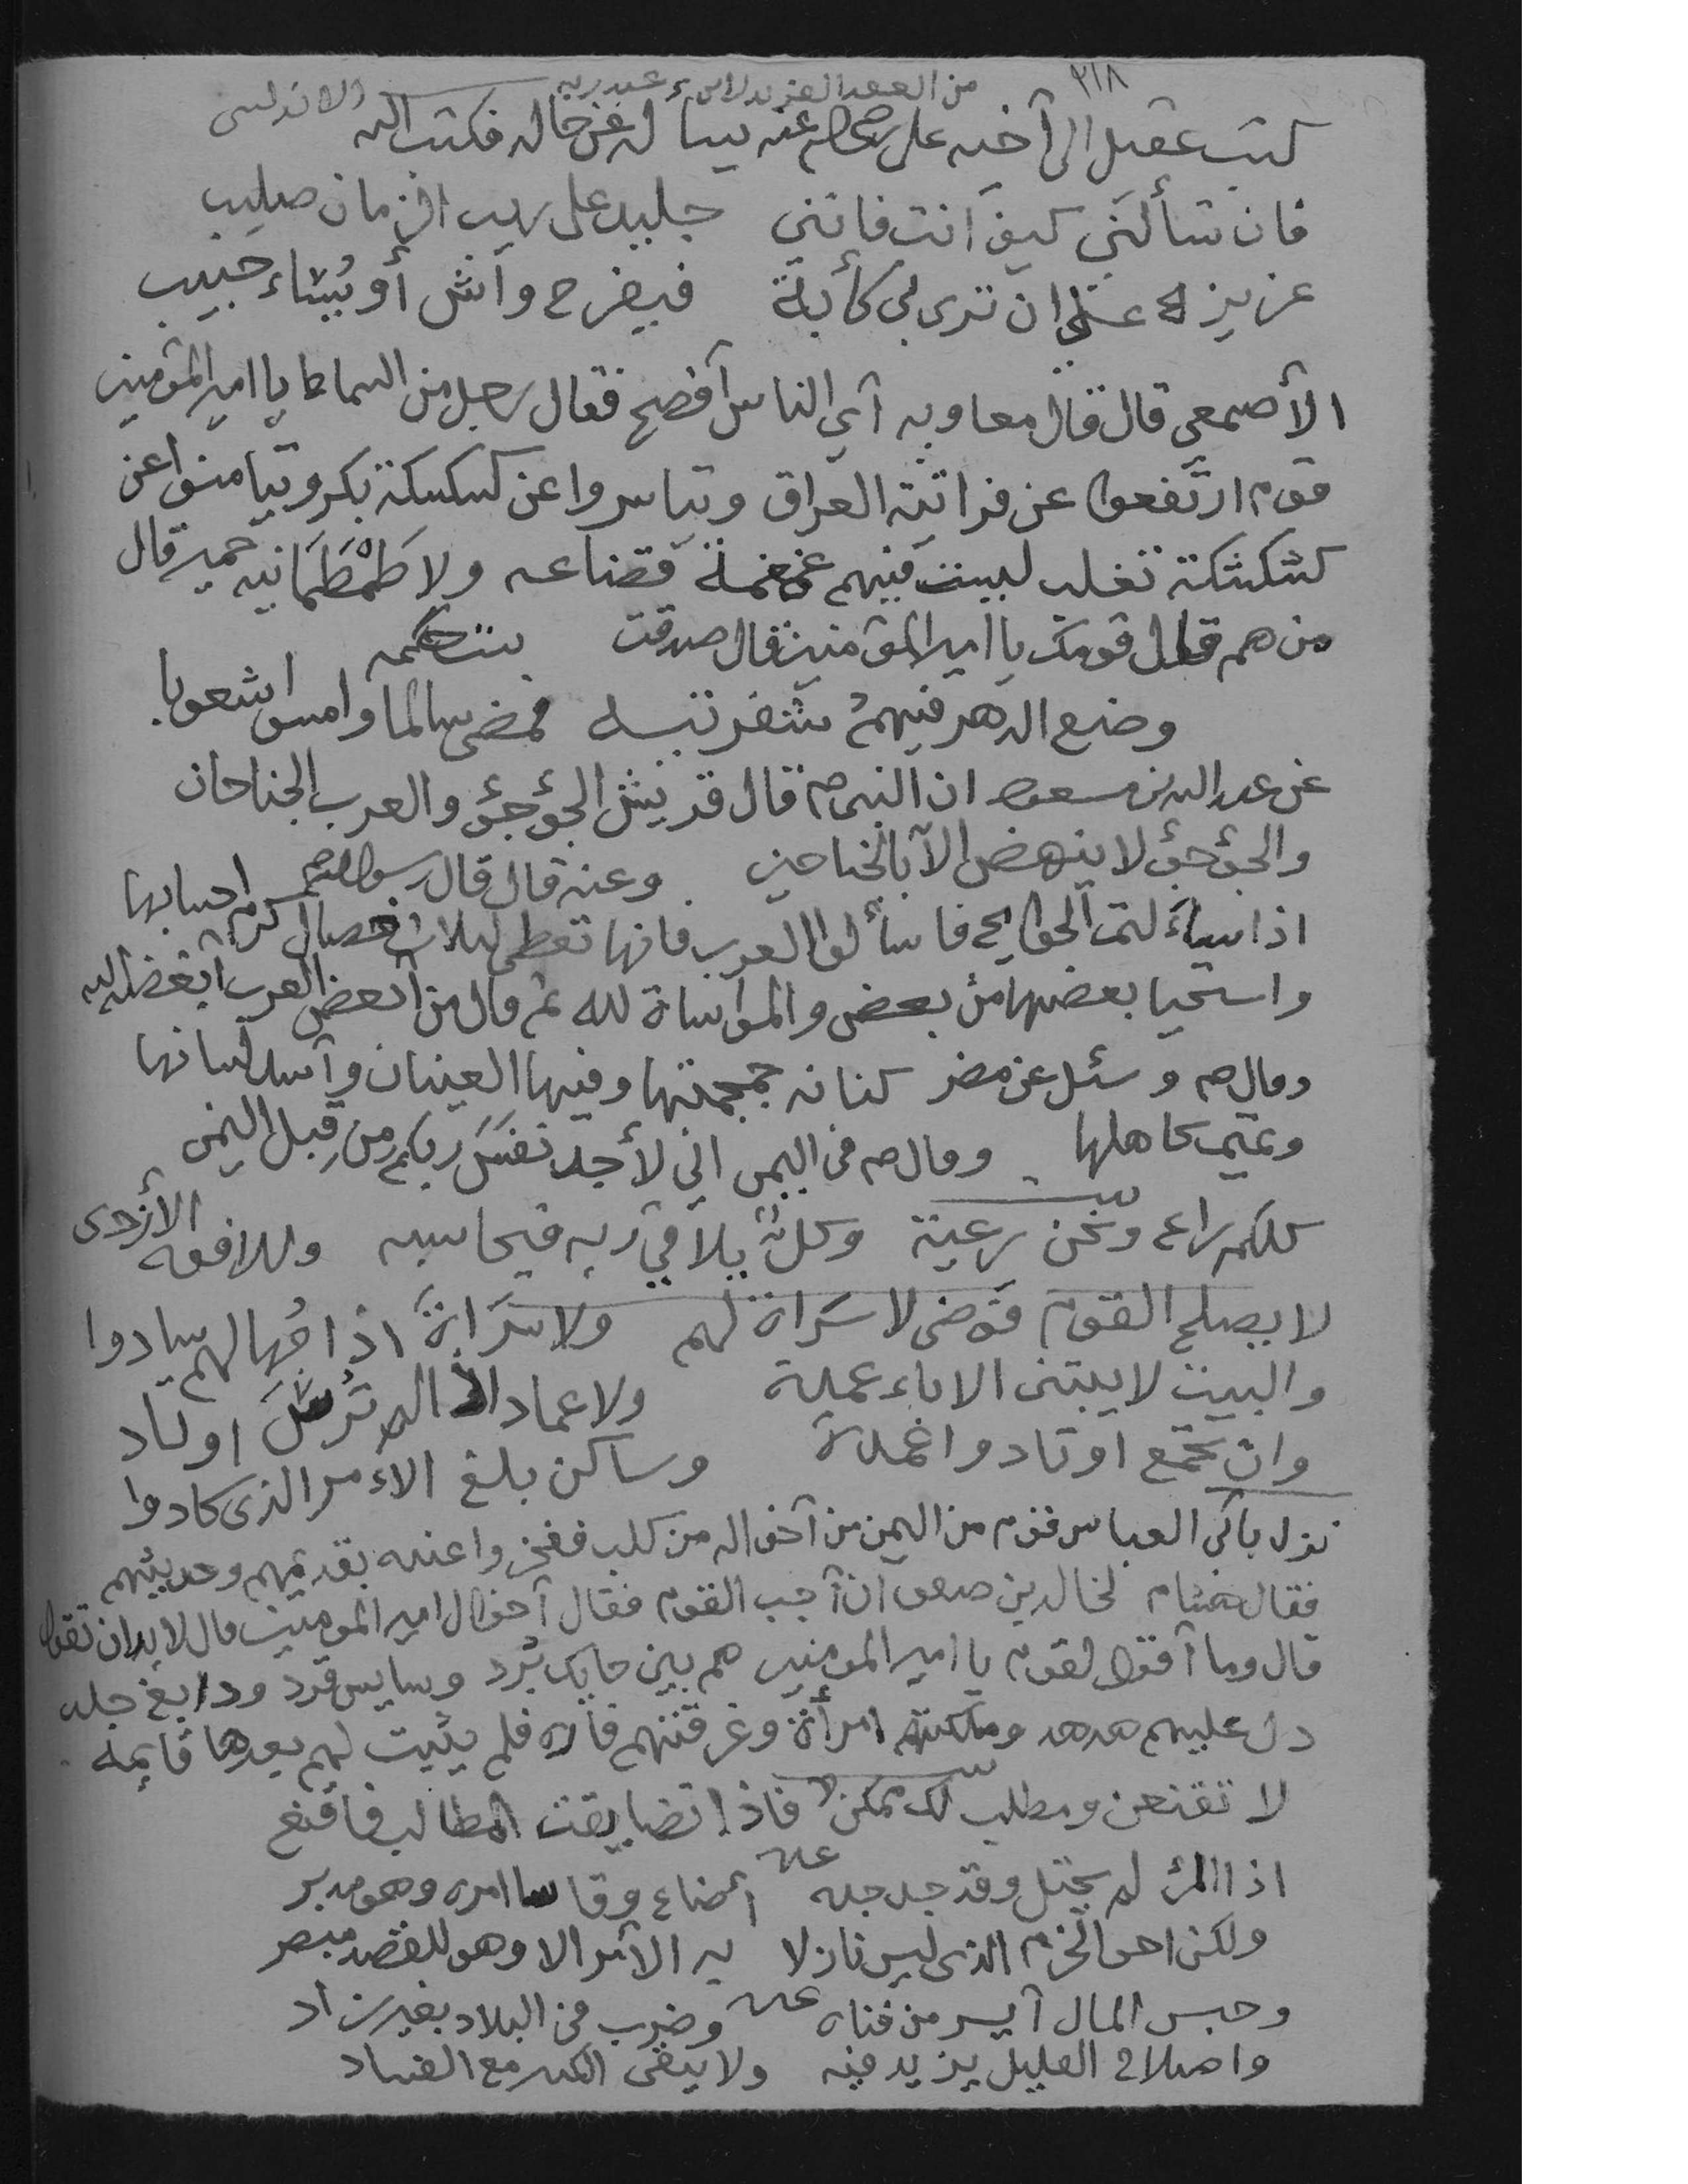 ٢١٨
من العقد الفريد لابن عبد ربه الاندلسى
كتب عقيل الى أخيه على رضى الله عنه يسأله عن حاله فكتب اليه
فان تسألنى كيف انت فانني جليد على ريب الزمان صليب
عزيز علي ان ترى بي كأبة فيفرح واش أو يُساء حبيب
الأصمعي قال قال معاويه أي الناس أفصح فقال رجل من السماط يا امير المؤمنين
قوم ارتفعوا عن فراتية العراق وتياسروا عن كسكسكة بكر وتيامنوا عن
كشكشكة تغلب ليست فيهم غمغمة قضاعه ولا طُمْطُمَانيه حمير قال
من هم قال قومك يا امير المؤمنين قال صدقت بنت حكمه
وضع الدهر فيهم شفرتيه فمضى سالما وامسوا شعوبا
عن عبد الله بن مسعود ان النبى ص قال قريش الجؤجؤ والعرب الجناحان
والجؤجؤ لا ينهض الا بالجناحين وعنه قال قال رسول الله ص
اذا سألتم الحوايج فاسألوا العرب فانها تعطى لثلاث خصال كرم احسابها
واستحيا بعضها من بعض والمواساة لله ثم قال من أبغض العرب أبغضه الله
وقال ص وسئل عن مضر كنانه جمجمتها وفيها العينان وأسد لسانها
وتميم كاهلها وقال ص فى اليمن اني لأجد نفَسَ ربكم من قِبل اليمن
كلكم راع ونحن رعية وكلٌ يلاقي ربه فيحاسبه وللافوه الأزدى
لا يصلح القوم فوضى لا سَراة لهم ولا سَراةَ اذا جُهالهم سادوا
والبيت لا يبتنى الا باعمدة ولا عماد اذا لم تُرسَ اوتاد
وان تجمع اوتاد واعمدة وساكن بلغ الامر الذى كادوا
نزل بأبى العباس قوم من اليمن من أخواله من كلب ففخروا عنده بقديمهم وحديثهم
فقال لخالد بن صفوان أجب القوم فقال أخوال امير المومنين قال لا بد ان تقول
قال وما أقول لقوم يا امير المومنين هم بين حايك بُرد وسايس قرد ودابغ جلد
دل عليهم هدهد وملكتهم امرأة وغرقتهم فأره فلم يثبت لهم بعدها قايمة
لا تقنعن ومطلب لك ممكن فاذا تضايقت المطالب فاقنع
اذا المرء لم يحتل وقد جد جده أضاع وقاسا امره وهو مدبر
ولكن اخو الحزم الذى ليس نازلا به الأمر الا وهو للقصد مبصر
وحبس المال أيسر من فناه وضرب فى البلاد بغير زاد
واصلاح القليل يزيد فيه ولا يبقى الكثير مع الفساد